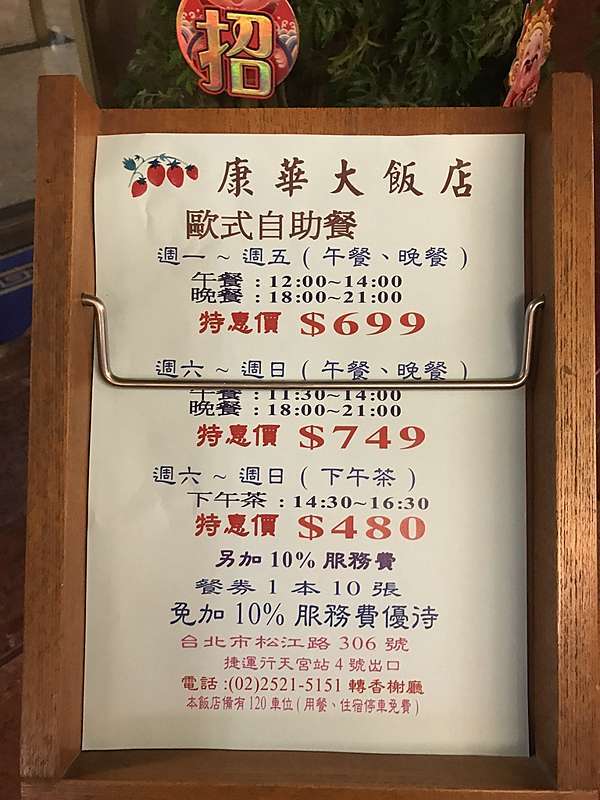 招
康華大飯店
歐式自助餐
週一 ~ 週五 ( 午餐、晚餐 )
午餐 : 12:00~14:00
晚餐 : 18:00~21:00
特惠價 $699
週六 ~ 週日 ( 午餐、晚餐 )
午餐 : 11:30~14:00
晚餐 : 18:00~21:00
特惠價 $749
週六 ~ 週日 ( 下午茶 )
下午茶 : 14:30~16:30
特惠價 $480
另加 10% 服務費
餐券 1 本 10 張
免加 10% 服務費優待
台北市松江路 306 號
捷運行天宮站 4 號出口
電話 :(02)2521-5151 轉香榭廳
本飯店備有 120 車位 ( 用餐、住宿停車免費 )